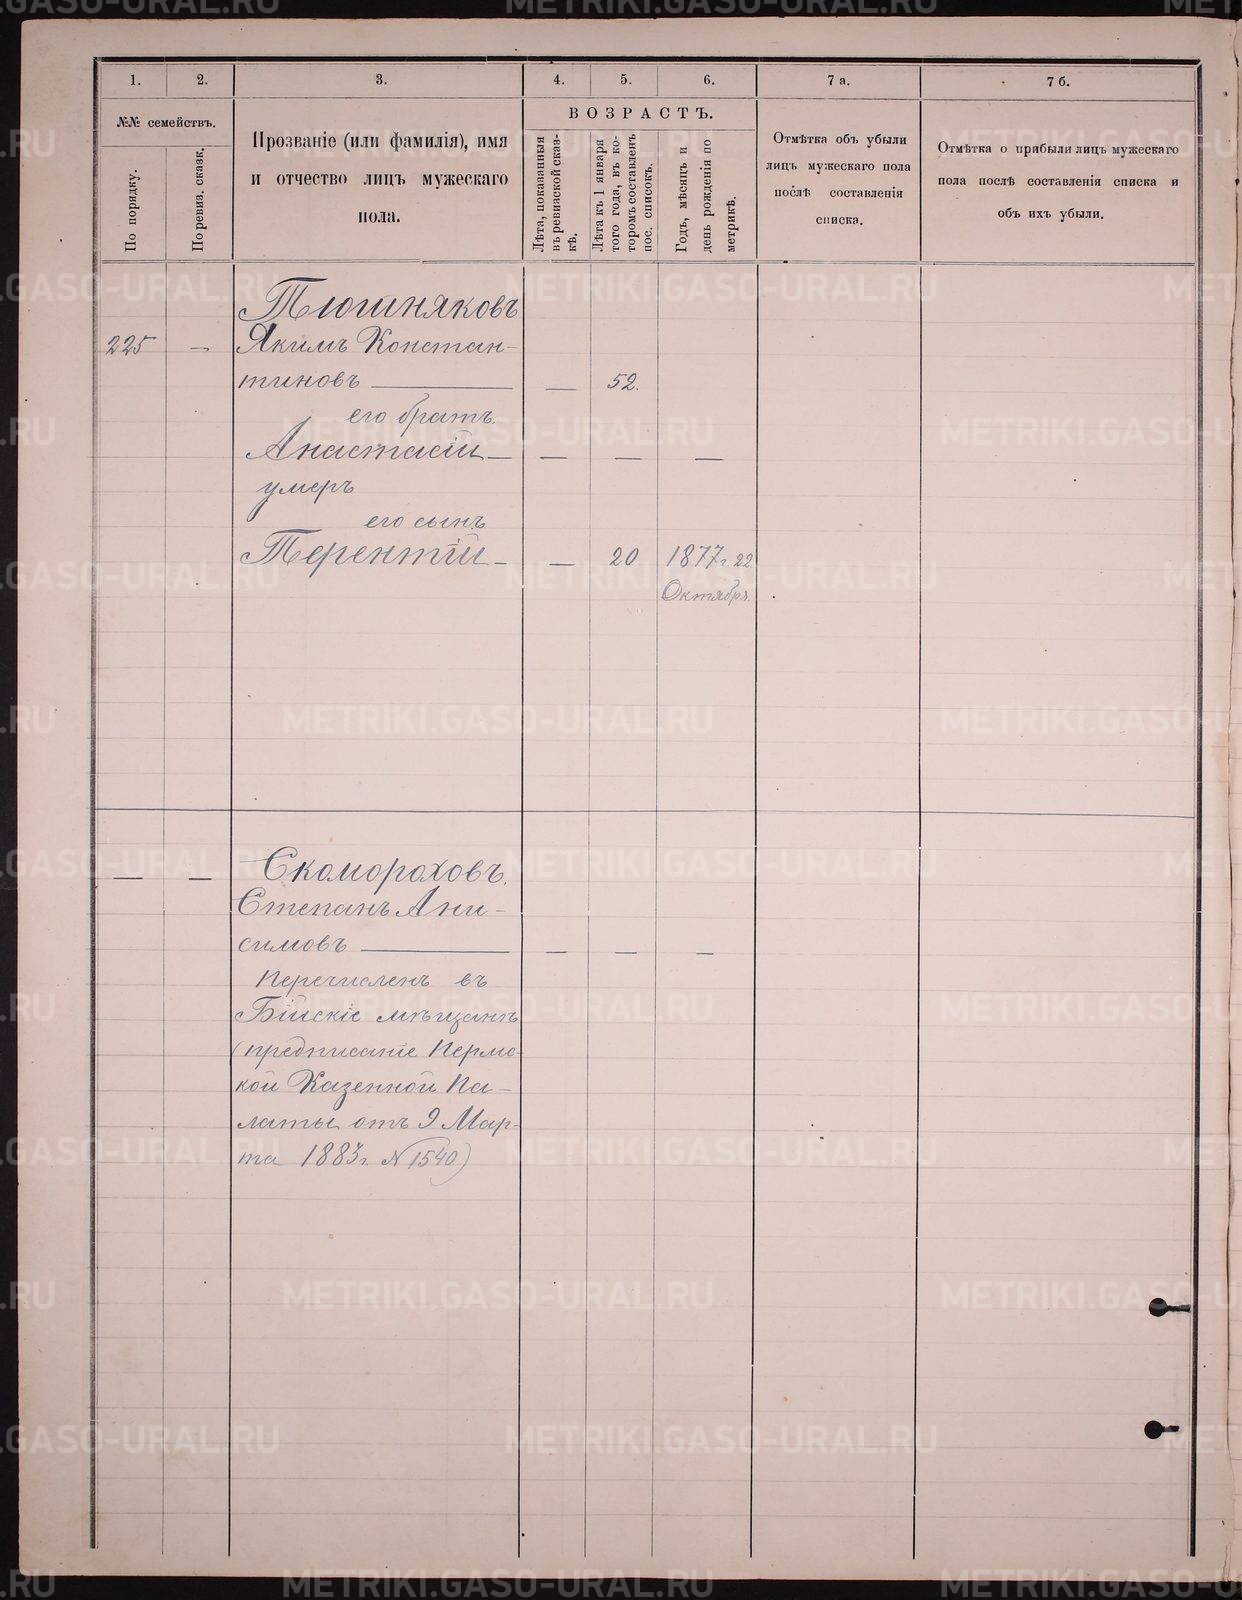 1.
2.
3.
4.
5.
6.
7 а.
7 б.
№№ семействъ.
По порядку.
По ревиз. сказк.
Прозваніе (или фамилія), имя
и отчество лицъ мужескаго
пола.
ВОЗРАСТЪ.
Лѣта, показанныя
въ ревизской сказ-
кѣ.
Лѣта къ 1 января
того года, въ ко-
торомъ составленъ
пос. списокъ.
Годъ, мѣсяцъ и
день рожденія по
метрикѣ.
Отмѣтка объ убыли
лицъ мужескаго пола
послѣ составленія
списка.
Отмѣтка о прибыли лицъ мужескаго
пола послѣ составленія списка и
объ ихъ убыли.
Тлюшняковъ
225 — Якимъ Констан-
тиновъ — — 52.
его братъ
Анастасій — — — —
умеръ
его сынъ
Терентій — — 20 1877 г. 22
Октября.
— — Скомороховъ
Степанъ Ани-
симовъ — — — —
Перечисленъ въ
Бійскіе мѣщане
(предписаніе Пермс-
кой Казенной Па-
латы отъ 9 Мар-
та 1883 г. № 1540)
METRIKI.GASO-URAL.RU